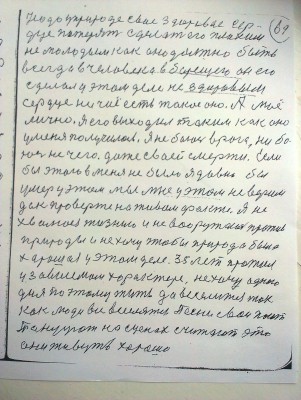 Надо природе свое здоровье сер-
дце попросят сделает его таким
не молодым как оно должно быть
всегда в человека в бывшего он его
сделал у этом деле не здоровым
сердце на чие есть такое оно. А моё
лично. Я его выходил таким как оно
у меня получилось. Я не боюсь врага, ни бо-
юсь не чего, даже своей смерти. Если
бы этого в меня не было я давно бы
умер у этом мы мне у этом не верим
дак проверте на живом факте. Я не
хвалюсь жизнью и не вооружаюсь против
природы и не хочу чтобы природа была
хорошая у этом деле. 35 лет прожил
у зависимом характере, не хочу одного
дня поэтому жить да веселится так
как люди все веселятся Песни свои поют
Танцуют на сценах считают это
они живуть хорошо